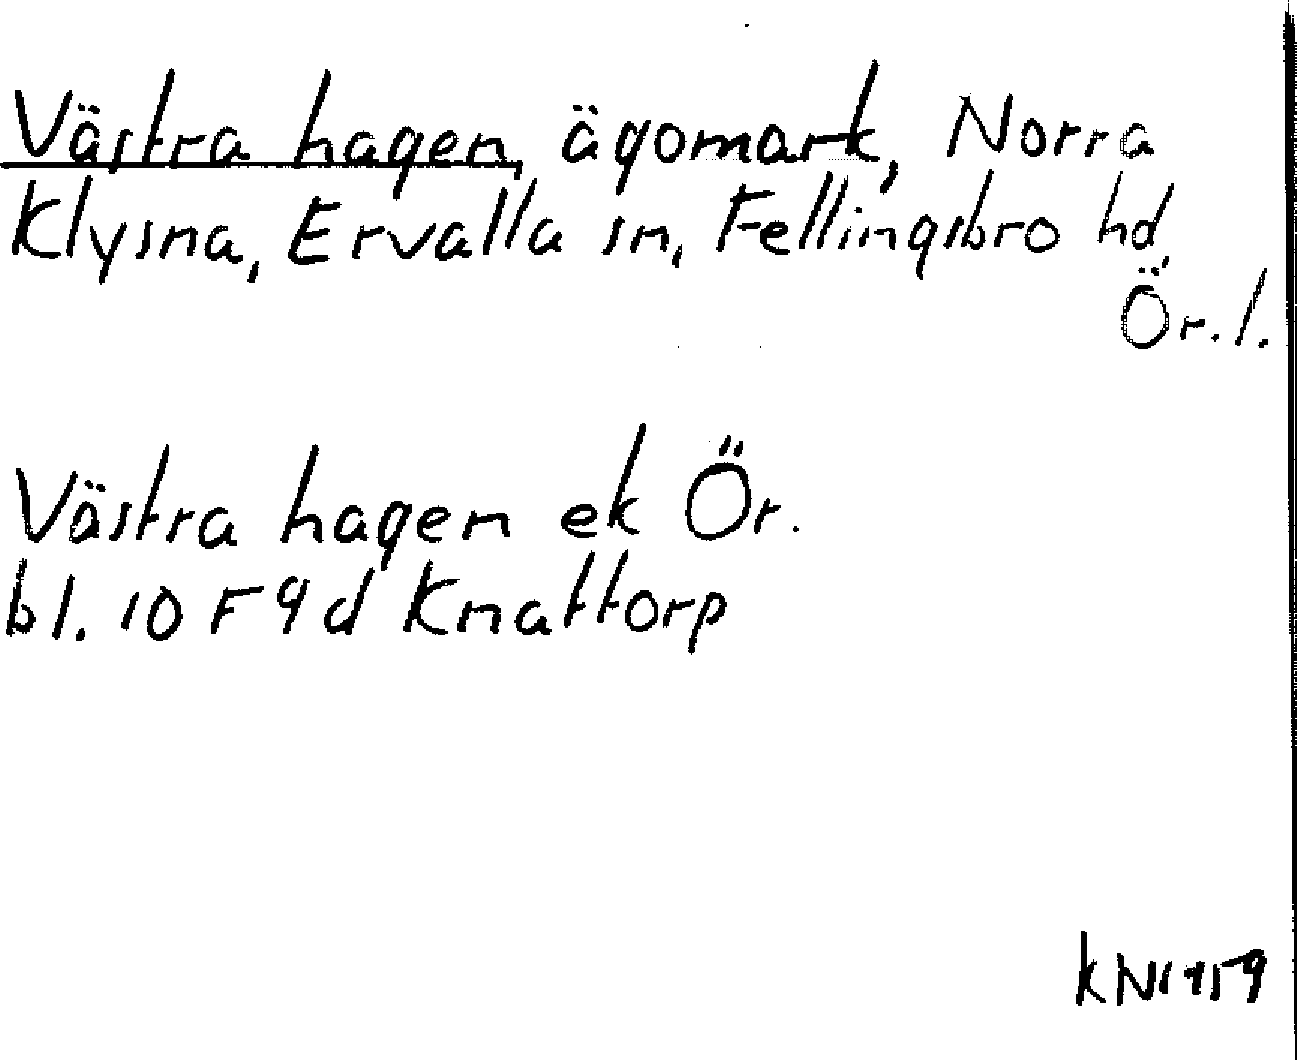 Västra hagen, ägomark, Norra
Klysna, Ervalla sn, Fellingsbro hd,
Ör. l.
Västra hagen ek Ör.
bl. 10 F 9 d Knattorp